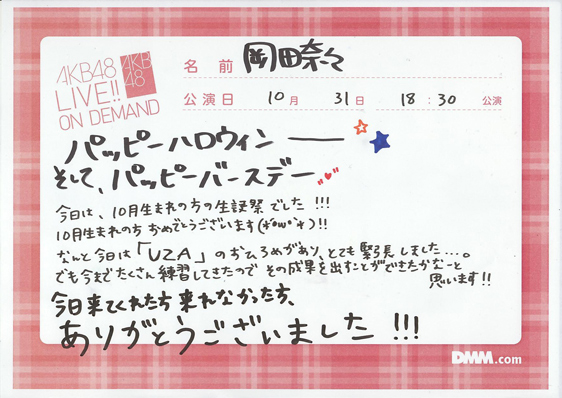 AKB48
LIVE!!
ON DEMAND
AKB
48
名前 岡田奈々
公演日 10月 31日 18:30 公演
パッピーハロウィンー
そして、パッピーバースデー
今日は、10月生まれの方の生誕祭でした!!!
10月生まれの方 おめでとうございます(*´ω`*)!!
なんと今日は「UZA」のおひろめがあり、とても緊張しました…。
でも今までたくさん練習してきたので その成果を出すことができたかなーと
思います!!
今日来てくれた方 来れなかった方、
ありがとうございました!!!
DMM.com